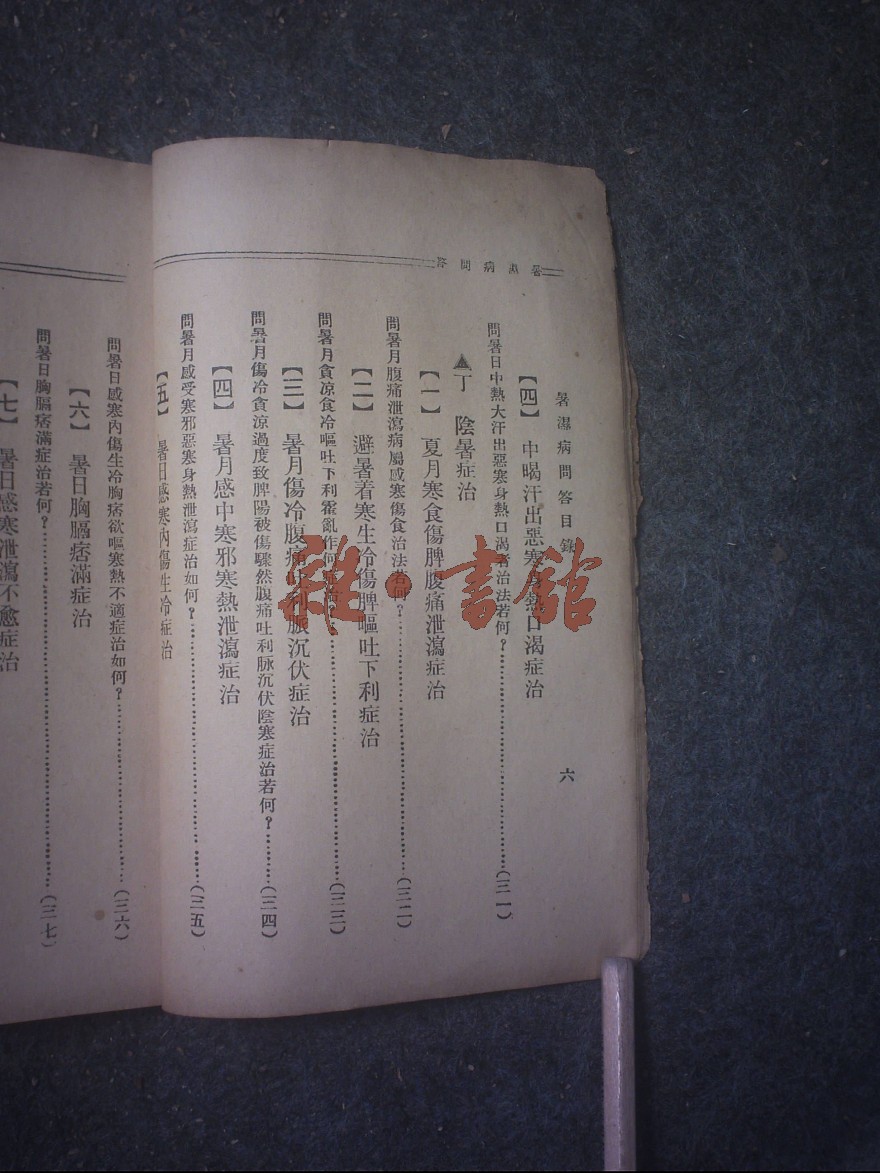 暑濕病問答
暑濕病問答目錄
六
【四】 中暍汗出惡寒身熱口渴症治
問暑日中熱大汗出惡寒身熱口渴者治法若何?……(三一)
▲丁 陰暑症治
【一】 夏月寒食傷脾腹痛泄瀉症治
問暑月腹痛泄瀉病屬感寒傷食治法若何?……(三二)
【二】 避暑着寒生冷傷脾嘔吐下利症治
問暑月貪凉食冷嘔吐下利霍亂作何……(三三)
【三】 暑月傷冷腹痛吐利脈沉伏症治
問暑月傷冷貪凉過度致脾陽被傷驟然腹痛吐利脉沉伏陰寒症治若何?……(三四)
【四】 暑月感中寒邪寒熱泄瀉症治
問暑月感受寒邪惡寒身熱泄瀉症治如何?……(三五)
【五】 暑日感寒內傷生冷症治
問暑日感寒內傷生冷胸痞欲嘔寒熱不適症治如何?……(三六)
【六】 暑日胸膈痞滿症治
問暑日胸膈痞滿症治若何?……(三七)
【七】 暑日感寒泄瀉不愈症治
雜·書館